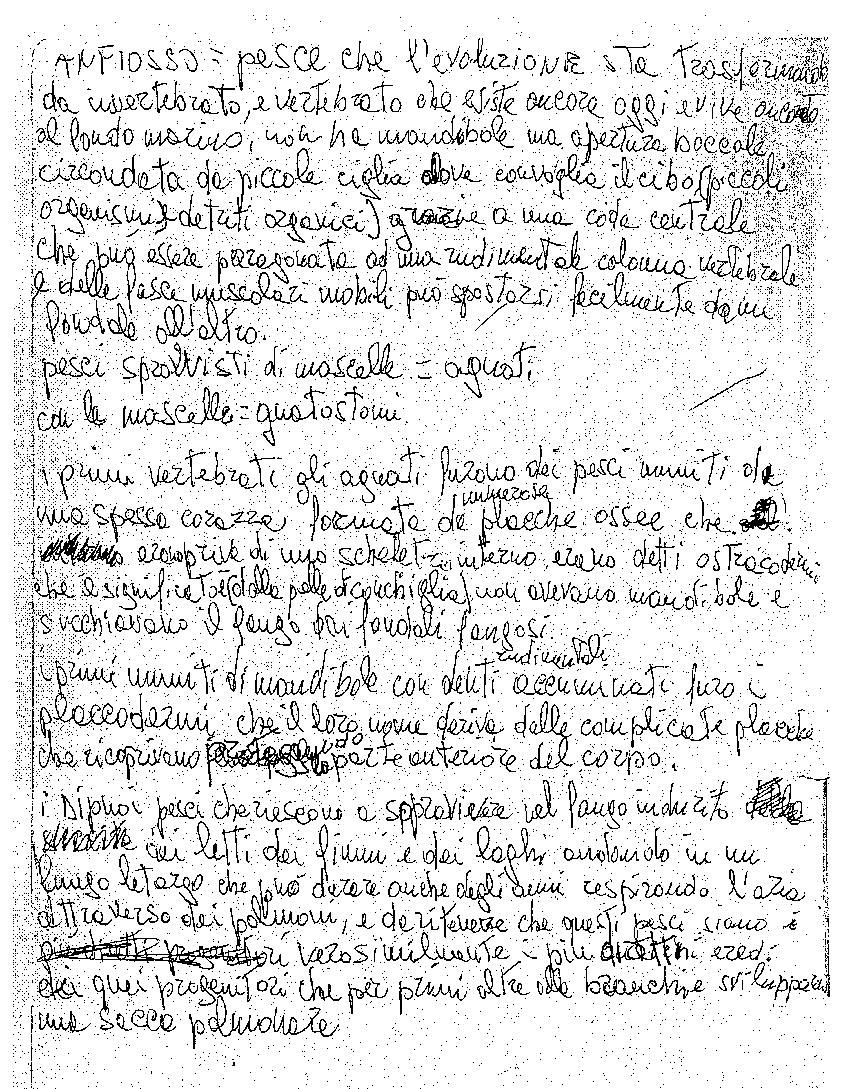 ANFIOSSO = pesce che l'evoluzione sta trasformando
da invertebrato, e vertebrato che esiste ancora oggi e vive
al fondo marino, non ha mandibole ma apertura boccale
circondata da piccole ciglia dove convoglia il cibo (piccoli
organismi e detriti organici) grazie a una coda centrale
che può essere paragonata ad una rudimentale colonna vertebrale
e delle fasce muscolari mobili può spostarsi facilmente da un
fondale all'altro.
pesci sprovvisti di mascelle = agnati
con le mascelle = gnatostomi
i primi vertebrati gli agnati furono dei pesci muniti da
una spessa corazza formata da numerose placche ossee che
erano privi di uno scheletro interno, erano detti ostracodermi
che a significato è (dalla pelle di conchiglia) non avevano mandibole e
succhiavano il fango dai fondali fangosi.
i primi muniti di mandibole con denti rudimentali accuminati furo i
placcodermi, che il loro nome deriva dalle complicate placche
che ricoprivano parte anteriore del corpo.
i Dipnoi pesci che riescono a sopravvivere nel fango indurito
dei letti dei fiumi e dei laghi andando in un
lungo letargo che può durare anche degli anni respirando l'aria
attraverso dei polmoni, e da ritenere che questi pesci siano i
verosimilmente i più eredi
dei quei progenitori che per primi oltre alle branchie svilupparono
una sacca polmonare